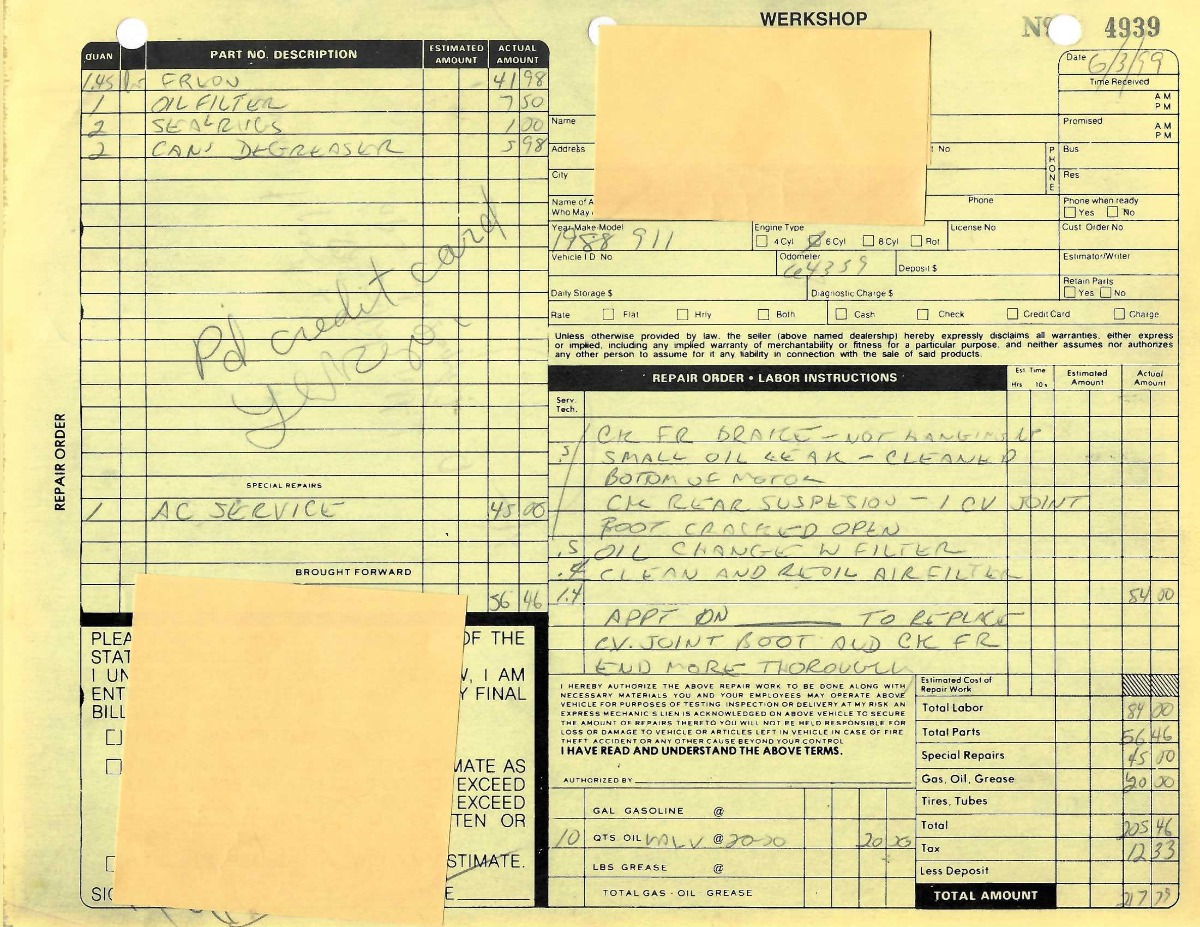 WERKSHOP
Nº 4939
QUAN PART NO. DESCRIPTION ESTIMATED AMOUNT ACTUAL AMOUNT
1.45 FREON 41 98
1 OIL FILTER 7 50
2 SEALRNGS 1 00
2 CANS DEGREASER 5 98
Pd credit card
REPAIR ORDER
SPECIAL REPAIRS
1 AC SERVICE 45 00
BROUGHT FORWARD
56 46
PLEA
OF THE
STAT
I UN
, I AM
ENT
Y FINAL
BILL
MATE AS
EXCEED
EXCEED
TEN OR
STIMATE.
SIG
E
Date 6/3/99
Time Received
AM
PM
Name
Promised
AM
PM
Address
No
PHONE
Bus
City
Res
Name of A
Who May
Phone
Phone when ready
Yes No
Year-Make-Model 1988 911
Engine Type
4 Cyl 6 Cyl 8 Cyl Rot
License No
Cust. Order No
Vehicle I D No
Odometer 64359
Deposit $
Estimator/Writer
Retain Parts
Yes No
Daily Storage $
Diagnostic Charge $
Rate Flat Hrly Both Cash Check Credit Card Charge
Unless otherwise provided by law, the seller (above named dealership) hereby expressly disclaims all warranties, either express
or implied, including any implied warranty of merchantability or fitness for a particular purpose, and neither assumes nor authorizes
any other person to assume for it any liability in connection with the sale of said products.
REPAIR ORDER • LABOR INSTRUCTIONS
Est Time Hrs 10's
Estimated Amount
Actual Amount
Serv. Tech.
CK FR BRAKE - NOT HANGING UP
.5 SMALL OIL LEAK - CLEANED
BOTOM OF MOTOR
CK REAR SUSPESION - 1 CV JOINT
BOOT CRACKED OPEN
.5 OIL CHANGE W FILTER
.4 CLEAN AND REOIL AIR FILTER
1.4 84 00
APPT ON ______ TO REPLACE
CV. JOINT BOOT AND CK FR
END MORE THOROUGLY
I HEREBY AUTHORIZE THE ABOVE REPAIR WORK TO BE DONE ALONG WITH
NECESSARY MATERIALS YOU AND YOUR EMPLOYEES MAY OPERATE ABOVE
VEHICLE FOR PURPOSES OF TESTING INSPECTION OR DELIVERY AT MY RISK AN
EXPRESS MECHANIC'S LIEN IS ACKNOWLEDGED ON ABOVE VEHICLE TO SECURE
THE AMOUNT OF REPAIRS THERETO YOU WILL NOT BE HELD RESPONSIBLE FOR
LOSS OR DAMAGE TO VEHICLE OR ARTICLES LEFT IN VEHICLE IN CASE OF FIRE
THEFT ACCIDENT OR ANY OTHER CAUSE BEYOND YOUR CONTROL
I HAVE READ AND UNDERSTAND THE ABOVE TERMS.
AUTHORIZED BY
GAL GASOLINE @
10 QTS OIL VALV @ 20-50 20 00
LBS GREASE @
TOTAL GAS - OIL - GREASE
Estimated Cost of Repair Work
Total Labor 84 00
Total Parts 56 46
Special Repairs 45 00
Gas, Oil, Grease 20 00
Tires, Tubes
Total 205 46
Tax 12 33
Less Deposit
TOTAL AMOUNT 217 79